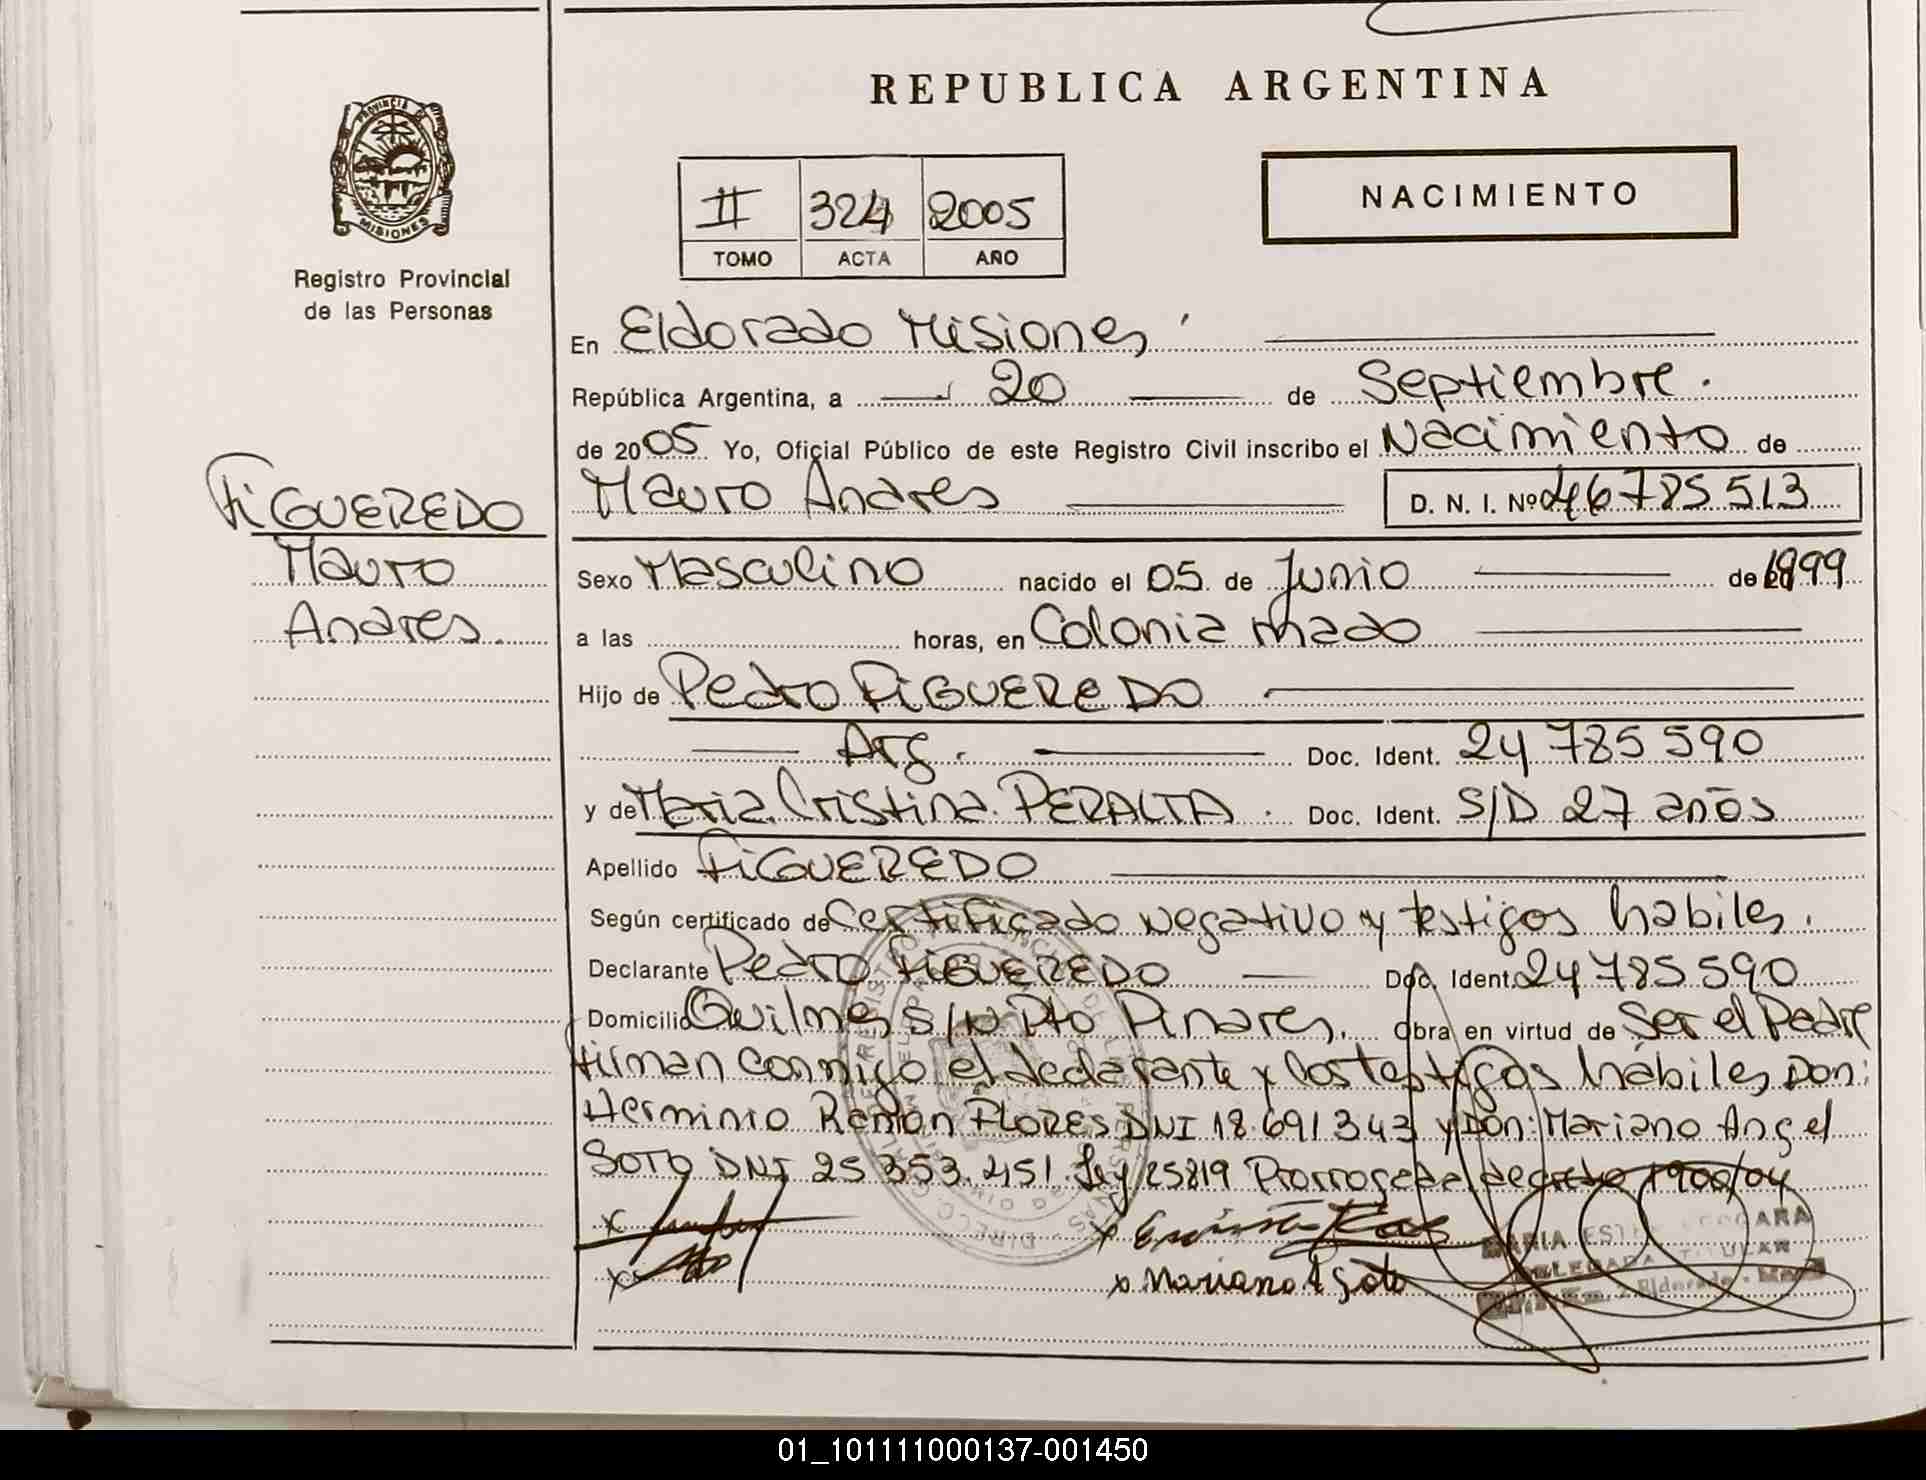 REPUBLICA ARGENTINA
PROVINCIA DE
MISIONES
Registro Provincial
de las Personas
II 324 2005
TOMO ACTA AÑO
NACIMIENTO
En Eldorado Misiones
República Argentina, a 20 de Septiembre.
de 2005 Yo, Oficial Público de este Registro Civil inscribo el Nacimiento de
FIGUEREDO
Mauro
Andres.
Mauro Andres D. N. I. Nº 46785513
Sexo Masculino nacido el 05 de Junio de 1999
a las horas, en Colonia Mado
Hijo de Pedro FIGUEREDO
Arg. Doc. Ident. 24 785 590
y de Maria Cristina PERALTA. Doc. Ident. S/D 27 años
Apellido FIGUEREDO
Según certificado de Certificado Negativo y testigos habiles.
Declarante Pedro FIGUEREDO Doc. Ident. 24 785 590
Domicilio Quilmes S/N Pto Pinares. Obra en virtud de Ser el Padre
Firman conmigo el declarante y los testigos hábiles Don:
Herminio Ramon FLORES DNI 18.691 343 y Don: Mariano Angel
SOTO DNI 25 353.451. Ley 25819 Prorrogada decreto 1900/04
x
x
x
x Mariano A Soto
DELEGADA TITULAR
Eldorado
01_101111000137-001450